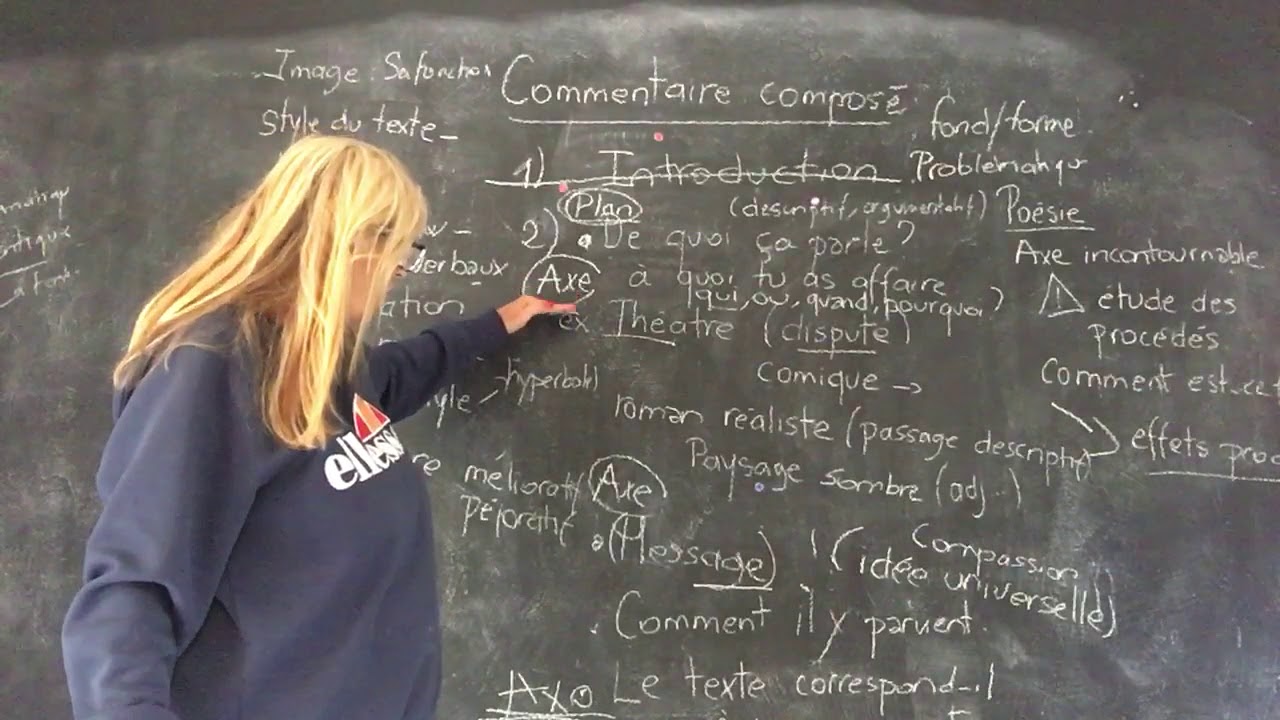 Image : Sa fonction
Style du texte
Commentaire composé
fond/forme.
1) Introduction Problématique
Plan (descriptif, argumentatif)
2) De quoi ça parle ?
Axe à quoi tu as affaire
qui, où, quand, pourquoi ?
ex Théâtre (dispute)
comique →
roman réaliste (passage descriptif)
Paysage sombre (adj.)
verbaux
ation
hyperbole
mélioratif
péjoratif
Axe
(Message) (idée universelle)
Compassion
Comment il y parvient.
Axe Le texte correspond-il
Poésie
Axe incontournable
étude des
procédés
Comment est-ce
effets
ellesse